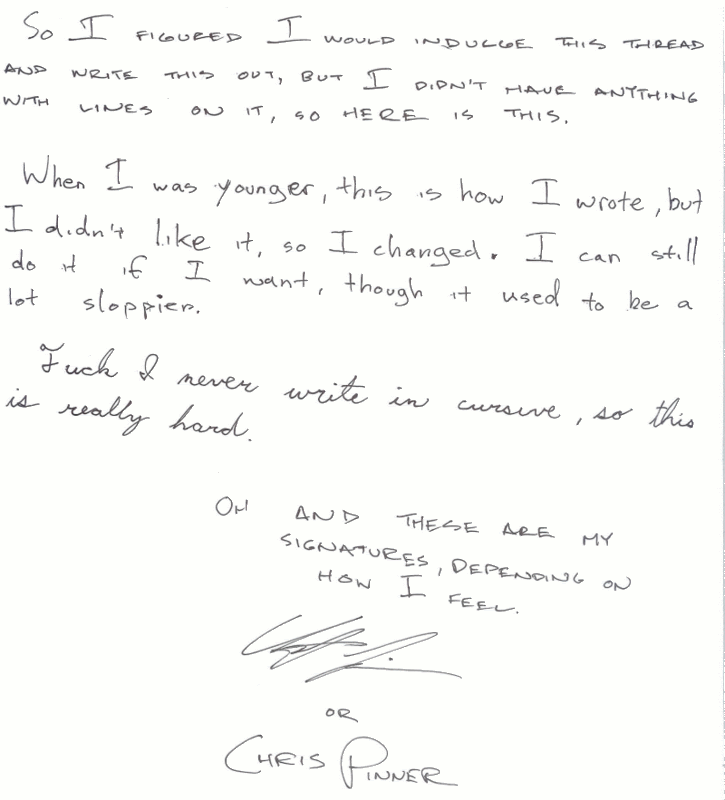 So I FIGURED I WOULD INDULGE THIS THREAD
AND WRITE THIS OUT, BUT I DIDN'T HAVE ANYTHING
WITH LINES ON IT, SO HERE IS THIS.
When I was younger, this is how I wrote, but
I didn't like it, so I changed. I can still
do it if I want, though it used to be a
lot sloppier.
Fuck I never write in cursive, so this
is really hard.
OH AND THESE ARE MY
SIGNATURES, DEPENDING ON
HOW I FEEL.
OR
CHRIS PINNER